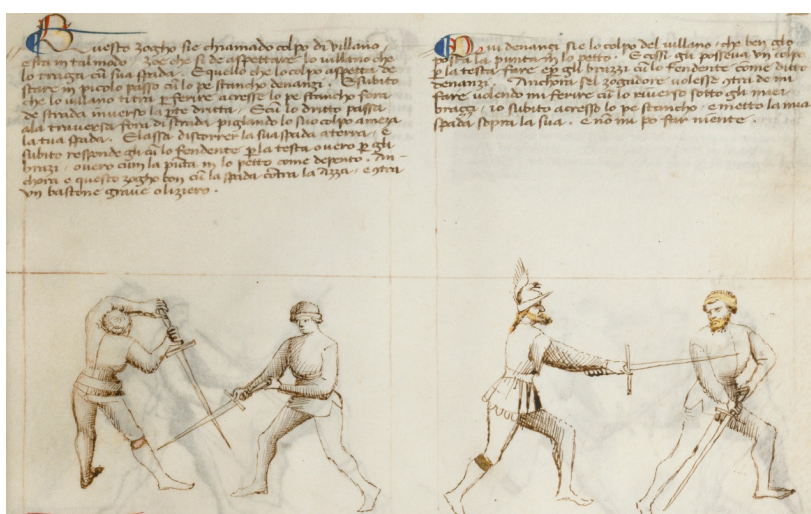 Questo zogho si e chiamado colpo di villano,
e sta in tal modo, zoe che si de aspettare lo villano che
lo traga cū sua spada. E quello che lo colpo aspetta de
stare in picolo passo cū lo pe stancho denanzi. E subito
che lo villano ti tra per ferire acresse lo pe stancho fora
de strada inverso la pte dritta. E cū lo dritto passa
ala traversa fora di strada pigliando lo suo colpo a meza
la tua spada. E lassa discorrer la sua spada a terra, e
subito responde gli cū lo fendente per la testa overo per gli
brazi, overo cum la pūta in lo petto come depento. An-
chora e questo zogho bon cū la spada cōtra la azza, e cōtra
un bastone grave o liziero.
Qui denanzi si e lo colpo del villano, che ben gl'o
posta la punta in lo petto. E cossi gli posseva un colpo
per la testa fare e per gli brazzi cū lo fendente come ditto
denanzi. Anchora s'el zogadore volesse cōtra de mi
fare volendo mi ferire cū lo riverso sotto gli miei
brazzi, io subito acresco lo pe stancho, e metto la mia
spada sopra la sua. E nō mi po far niente.